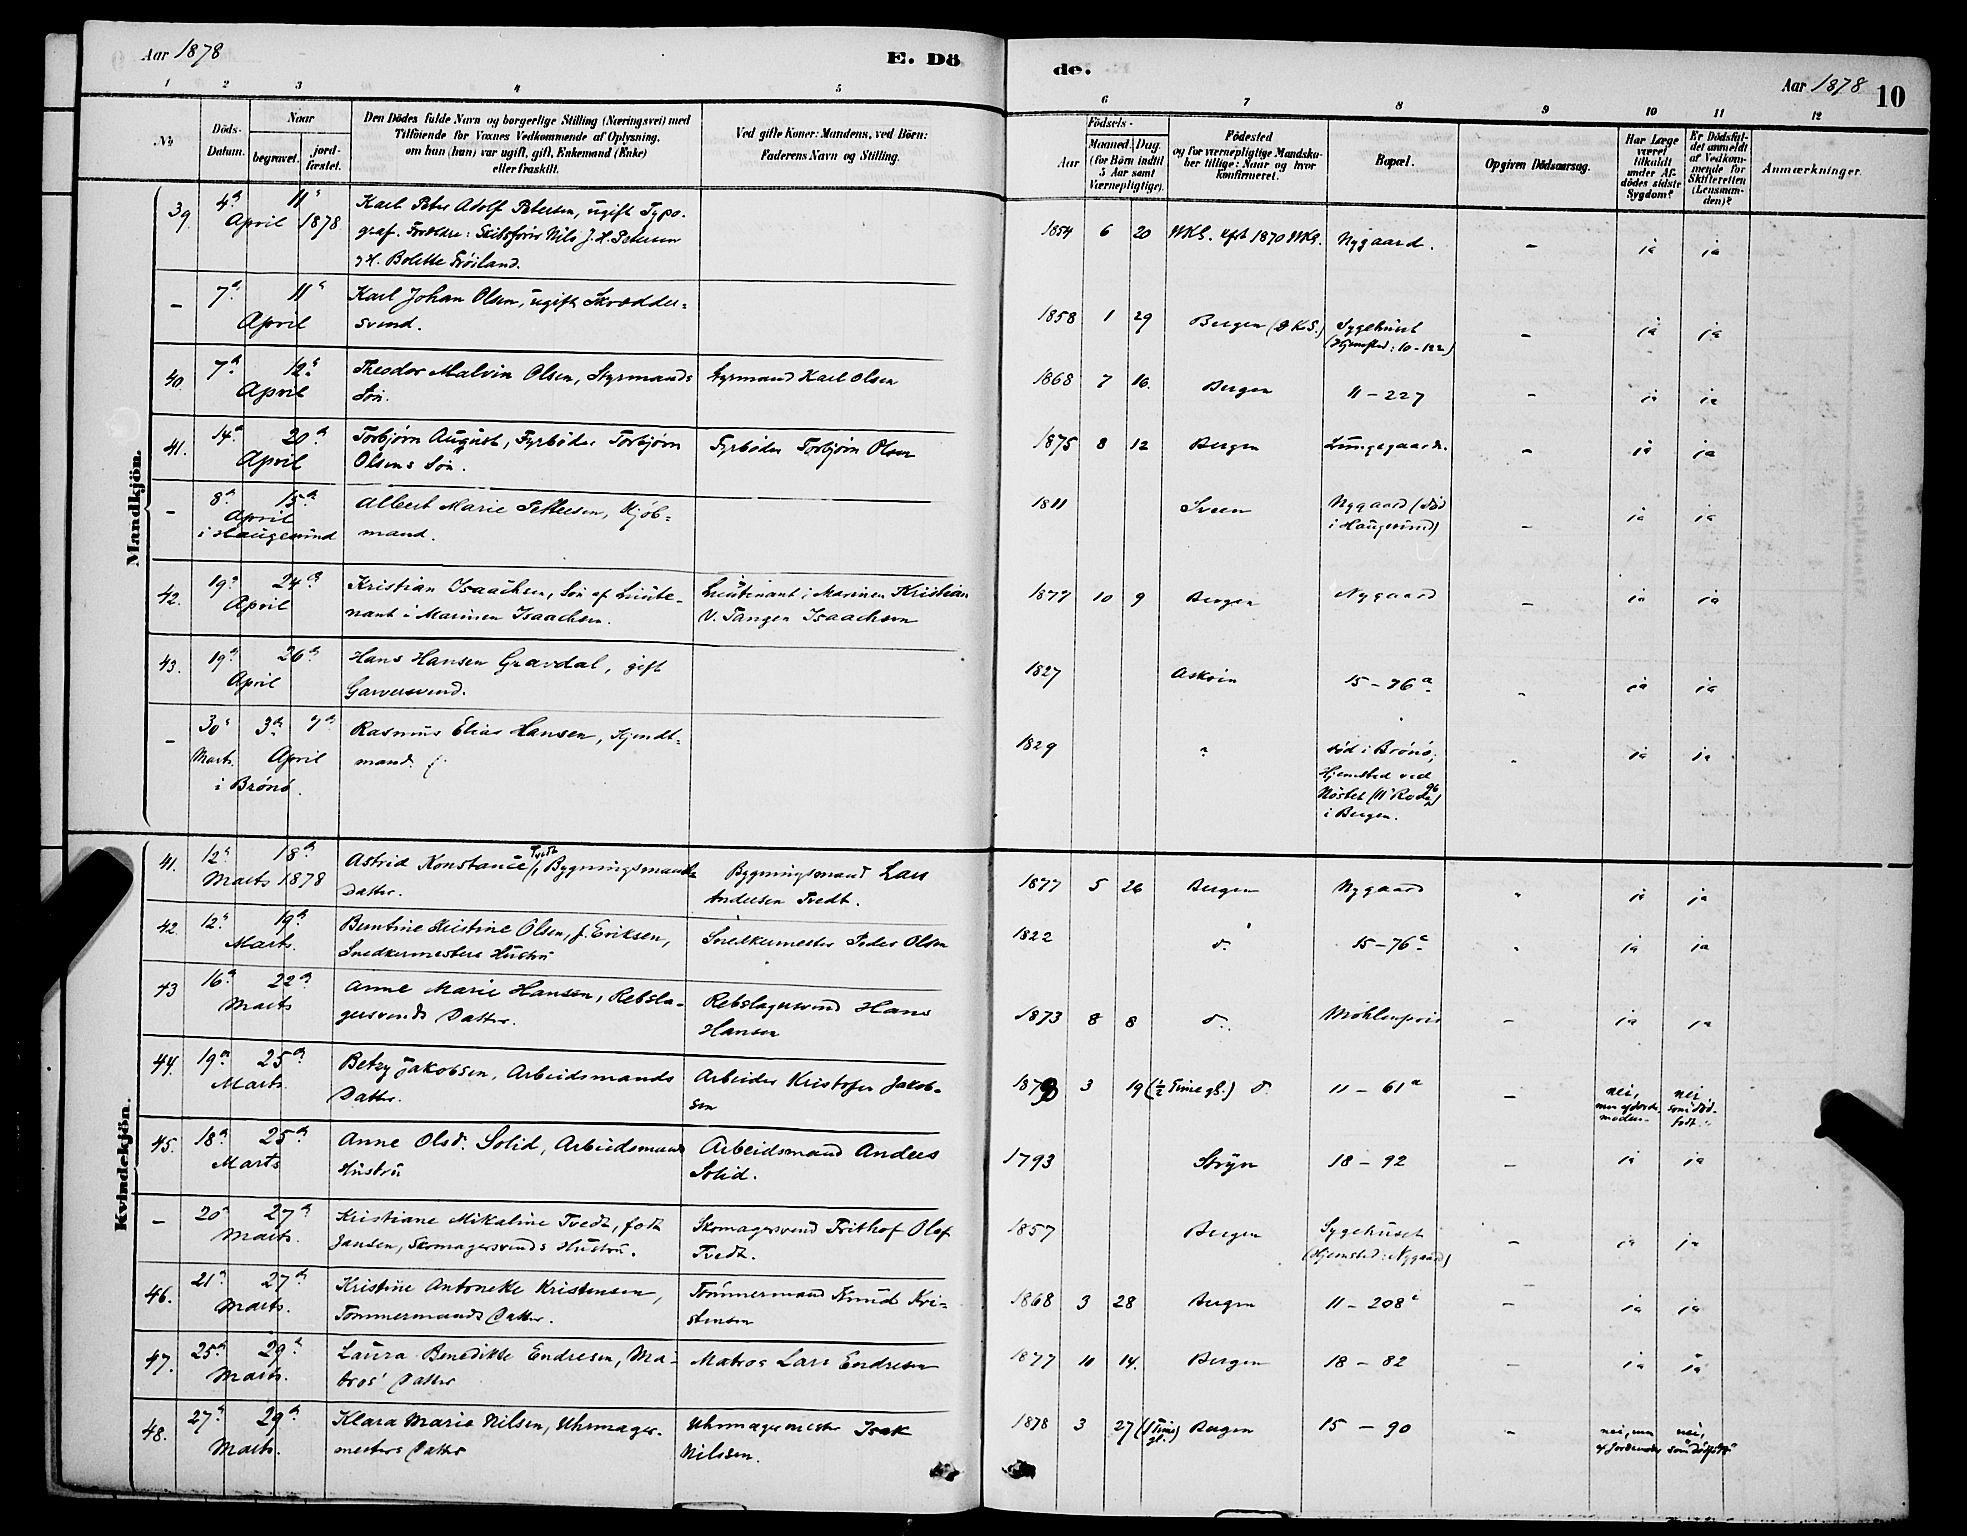 Aar 1878
E. Dö
de.
Aar 1878 10
1 2 3 4 5 6 7 8 9 10 11 12
No
Döds-
Datum.
Naar
begravet.
jord-
fæstet.
Den Dödes fulde Navn og borgerlige Stilling (Næringsvei) med
Tilföiende for Voxnes Vedkommende af Oplysning,
om han (hun) var ugift, gift, Enkemand (Enke)
eller fraskilt.
Ved gifte Koner: Mandens, ved Börn:
Faderens Navn og Stilling.
Födsels-
Aar
Maaned. Dag.
(for Börn indtil
5 Aar samt
Værnepligtige).
Födested
og for værnepligtige Mandska-
ber tillige: Naar og hvor
konfirmeret.
Bopæl.
Opgiven Dödsaarsag.
Har Læge
været
tilkaldt
under Af-
dödes sidste
Sygdom?
Er Dödsfal-
det anmeldt
af Vedkom-
mende for
Skifteretten
(Lensman-
den)?
Anmærkninger.
Mandkjön.
39. 4de April 11te 1878
Karl Peter Adolf Petersen, ugift Typo-
graf. Forældre: Skibsfører Nils J. H. Petersen
og H. Bolette Frøiland.
1854 6 20 NKS. kft 1870 NKS. Nygaard. - ja ja
- 7de 11te April
Karl Johan Olsen, ugift Skrædder-
svend.
1858 1 29 Bergen (DKS.) Sygehuset
(Hjemsted: 10-122) - ja ja
40. 7de 12te April
Theodor Malvin Olsen, Styrmands
Søn.
Styrmand Karl Olsen
1868 7 16. Bergen 11-227 - ja ja
41. 14de 20de April
Torbjørn August, Fyrbøder Torbjørn
Olsens Søn.
Fyrbøder Torbjørn Olsen
1875 8 12 Bergen Lungegaarden - ja ja
- 8de 15de April
i Haugesund
Albert Marie Pettersen, Kjøb-
mand.
1811 Sveen Nygaard (død
i Haugesund) - ja ja
42. 19de 24de April
Kristian Isaachsen, Søn af Lieute-
nant i Marinen Isaachsen.
Lieutenant i Marinen Kristian
V. Tangen Isaachsen
1877 10 9 Bergen Nygaard - ja ja
43. 19de 26de April
Hans Hansen Gravdal, gift
Garversvend.
1827 Askøen 15-76a - ja ja
- 30te Marts 3de 7de April
i Brønø.
Rasmus Elias Hansen, Kjendt-
mand.
1829 død i Brønø,
Hjemsted ved
Nøstet (11 Rode 96)
i Bergen. - ja ja
Kvindekjön.
41. 12te 18de Marts 1878
Astrid Konstance Tvedt, Bygningsmands
Datter.
Bygningsmand Lars
Andersen Tvedt.
1877 5 26 Bergen Nygaard - ja ja
42. 12te 19de Marts.
Berntine Kristine Olsen, f. Eriksen,
Snedkermesters Hustru
Snedkermester Peder Olsen
1822 do. 15-76c - ja ja
43 16de 22de Marts
Anne Marie Hansen, Rebsla-
gersvends Datter.
Rebslagersvend Hans
Hansen
1873 8 8 do. Møhlenpris - ja ja
44. 19de 25de Marts.
Betzy Jakobsen, Arbeidsmands
Datter.
Arbeider Kristofer Jakob-
sen
1878 3 19 (½ Time gl.) do. 11-61a - nei,
men af Jorde-
moder. nei,
som død-
født.
45. 18de 25de Marts
Anne Olsdr. Solid, Arbeidsmands
Hustru
Arbeidsmand Anders
Solid.
1793 Stryn 18-92 - ja ja
- 20de 27de Marts.
Kristiane Mikaline Tvedt, født
Jansen, Skomagersvends Hustru.
Skomagersvend Frithof Olaf
Tvedt.
1857 Bergen Sygehuset
(Hjemsted: Nygaard) - ja ja
46. 21de 27de Marts.
Kristine Antonette Kristensen,
Tømmermands Datter.
Tømmermand Knud Kri-
stensen
1868 3 28 Bergen 11-208c - ja ja
47. 25de 29de Marts.
Laura Benedikte Endresen, Ma-
tros' Datter
Matros Lars Endresen
1877 10 14. Bergen 18-82 - ja ja
48. 27de 29de Marts.
Klara Marie Nilsen, Uhrmager-
mesters Datter
Uhrmagermester Isak
Nilssen.
1878 3 27 (1 Time gl.) Bergen 15-90 - nei, men
af Jordemoder nei,
som dødfødt